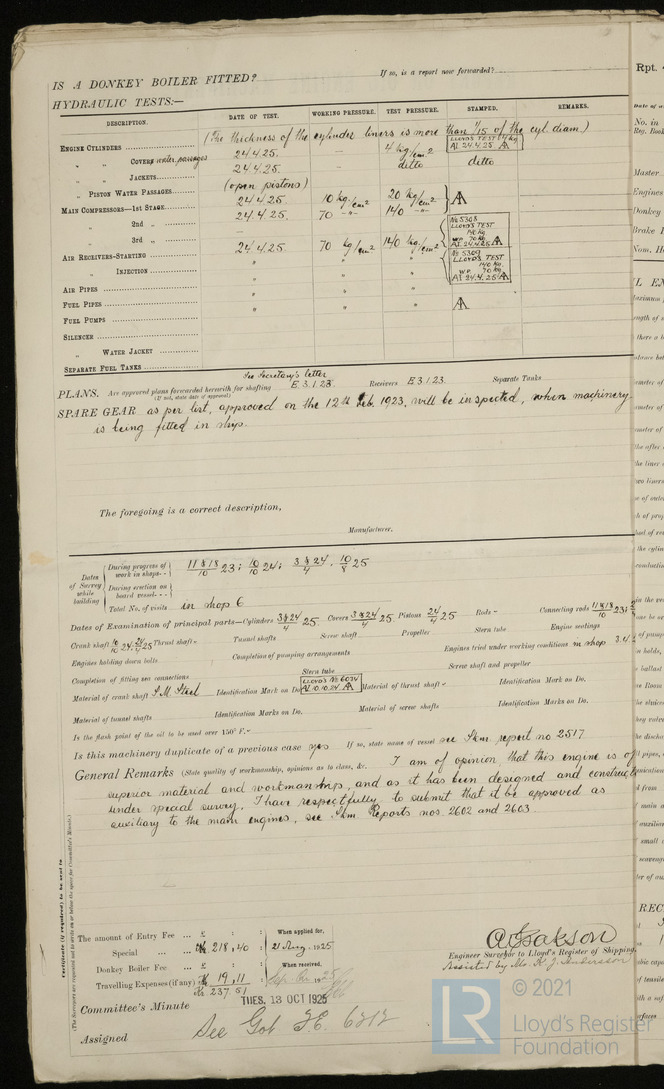 IS A DONKEY BOILER FITTED? If so, is a report now forwarded?
HYDRAULIC TESTS:—
DESCRIPTION. DATE OF TEST. WORKING PRESSURE. TEST PRESSURE. STAMPED. REMARKS.
(The thickness of the cylinder liners is more than 1/15 of the cyl. diam.)
ENGINE CYLINDERS 24.4.25. – 4 kg/cm² LLOYD'S TEST 4 kg AI 24.4.25
" " COVERS water passages 24.4.25. – ditto ditto
" " JACKETS (open pistons)
" PISTON WATER PASSAGES 24.4.25. 10 kg/cm² 20 kg/cm²
MAIN COMPRESSORS—1st STAGE 24.4.25. 70 -"- 140 -"-
" 2nd " –
" 3rd " 24.4.25 70 kg/cm² 140 kg/cm²
No 5308 LLOYD'S TEST 140 kg. W.P. 70 kg. AI 24.4.25
AIR RECEIVERS—STARTING " " "
No 5309 LLOYD'S TEST 140 kg. W.P. 70 kg. AI 24.4.25
" INJECTION " " "
AIR PIPES " " "
FUEL PIPES " " "
FUEL PUMPS
SILENCER
" WATER JACKET
SEPARATE FUEL TANKS
See Secretary's letter
PLANS. Are approved plans forwarded herewith for shafting E 3.1.23. Receivers E 3.1.23. Separate Tanks
(If not, state date of approval)
SPARE GEAR as per list, approved on the 12th Feb. 1923, will be inspected, when machinery
is being fitted in ships.
The foregoing is a correct description,
Manufacturer.
Dates of Survey while building
During progress of work in shops - - 11 & 18/10 23; 10/10 24; 3 & 24/4 . 10/8 25
During erection on board vessel - - -
Total No. of visits in shop 6
Dates of Examination of principal parts—Cylinders 3 & 24/4 25 Covers 3 & 24/4 25 Pistons 24/4 25 Rods - Connecting rods 11 & 18/10 23;
Crank shaft 10/10 24. 24/4 25 Thrust shaft - Tunnel shafts Screw shaft Propeller Stern tube Engine seatings
Engines holding down bolts Completion of pumping arrangements Engines tried under working conditions in shop
Completion of fitting sea connections Stern tube Screw shaft and propeller
Material of crank shaft S.M. Steel Identification Mark on Do. LLOYD'S No 6074 AI 10.10.24 Material of thrust shaft - Identification Mark on Do.
Material of tunnel shafts Identification Marks on Do. Material of screw shafts Identification Marks on Do.
Is the flash point of the oil to be used over 150° F. -
Is this machinery duplicate of a previous case yes If so, state name of vessel see Skm report no 2517
General Remarks (State quality of workmanship, opinions as to class, &c. I am of opinion that this engine is of
superior material and workmanship, and as it has been designed and constructed
under special survey, I have respectfully to submit that it be approved as
auxiliary to the main engines, see Skm Reports nos. 2602 and 2603.
Certificate (if required) to be sent to
(The Surveyors are requested not to write on or below the space for Committee's Minute.)
The amount of Entry Fee ... £ : :
Special ... ... Kr 218,40 :
Donkey Boiler Fee ... £ : :
Travelling Expenses (if any) Kr 19,11
Kr. 237.51
When applied for, 21 Aug. 1925
When received,
Engineer Surveyor to Lloyd's Register of Shipping.
Assisted by Mr. K. J. Andersson
Committee's Minute TUES. 13 OCT 1925
Assigned See Got F.E. 6212
LR © 2021
Lloyd's Register
Foundation
Rpt.